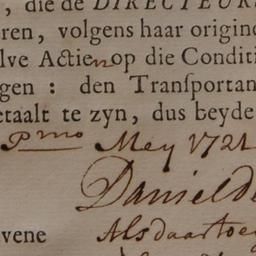 , die de DIRECTEURS
eren, volgens haar origine
lve Actienop die Conditi
gen : den Transportan
etaalt te zyn, dus beyde
Pmo Mey 1721
Daniel de
vene Alsdaartoeg